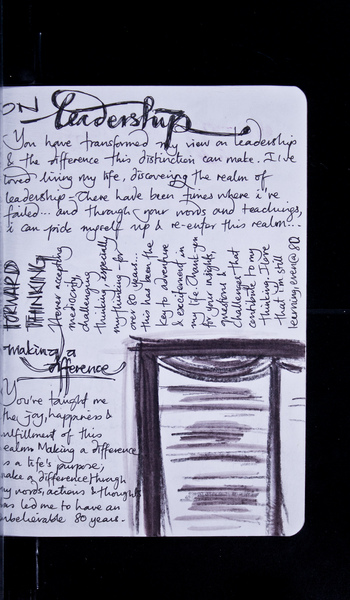 ON leadership
You have transformed my view on leadership
& the difference this distinction can make. I've
loved living my life, discovering the realm of
leadership - There have been times where i've
failed... and through your words and teachings,
i can pick myself up & re-enter this realm...
FORWARD
THINKING
Never accepting
mediocrity,
challenging
thinking, especially
my thinking - for
over 80 years...
this has been the
key to adventure
& excitement in
my life. Thank you
for your insights,
questions &
challenges that
contribute to my
thinking. I love
that I'm still
learning, even @ 80
making a
difference
You're taught me
the joy, happiness &
ulfillment of this
ealm. Making a difference
s a life's purpose,
ake a difference through
y words, actions & thoughts
as led me to have an
nbelievable 80 years.